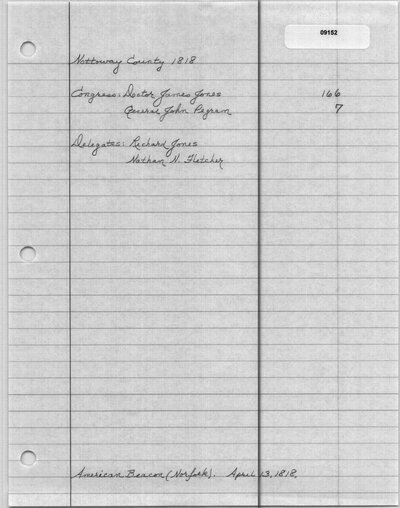 09152
Nottoway County 1818
Congress: Doctor James Jones 166
General John Pegram 7
Delegates: Richard Jones
Nathan H. Fletcher
American Beacon (Norfolk). April 13, 1818.